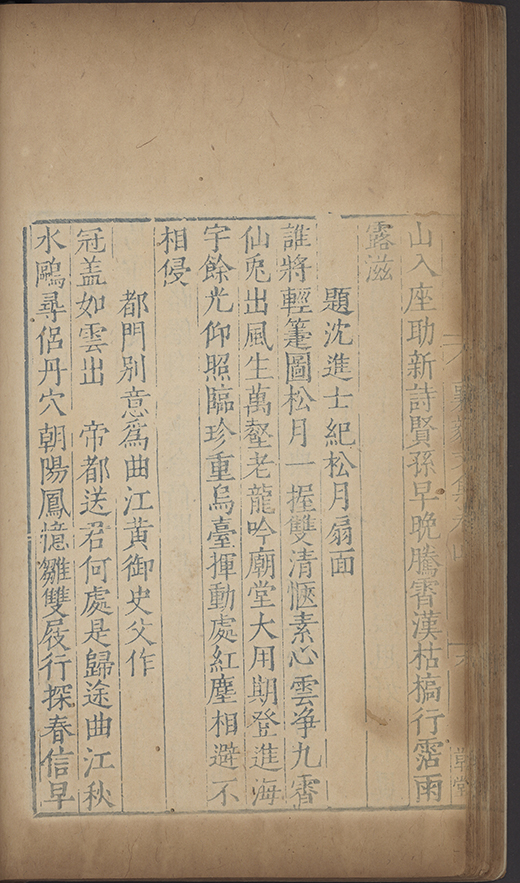 山入座助新詩賢孫早晚騰霄漢枯槁行霑雨
露滋
題沈進士紀松月扇面
誰將輕箑圖松月一握雙清愜素心雲爭九霄
仙兎出風生萬壑老龍吟廟堂大用期登進海
宇餘光仰照臨珍重烏臺揮動處紅塵相避不
相侵
都門別意爲曲江黃御史父作
冠盖如雲出 帝都送君何處是歸途曲江秋
水鷗尋侶丹穴朝陽鳳憶雛雙屐行探春信早